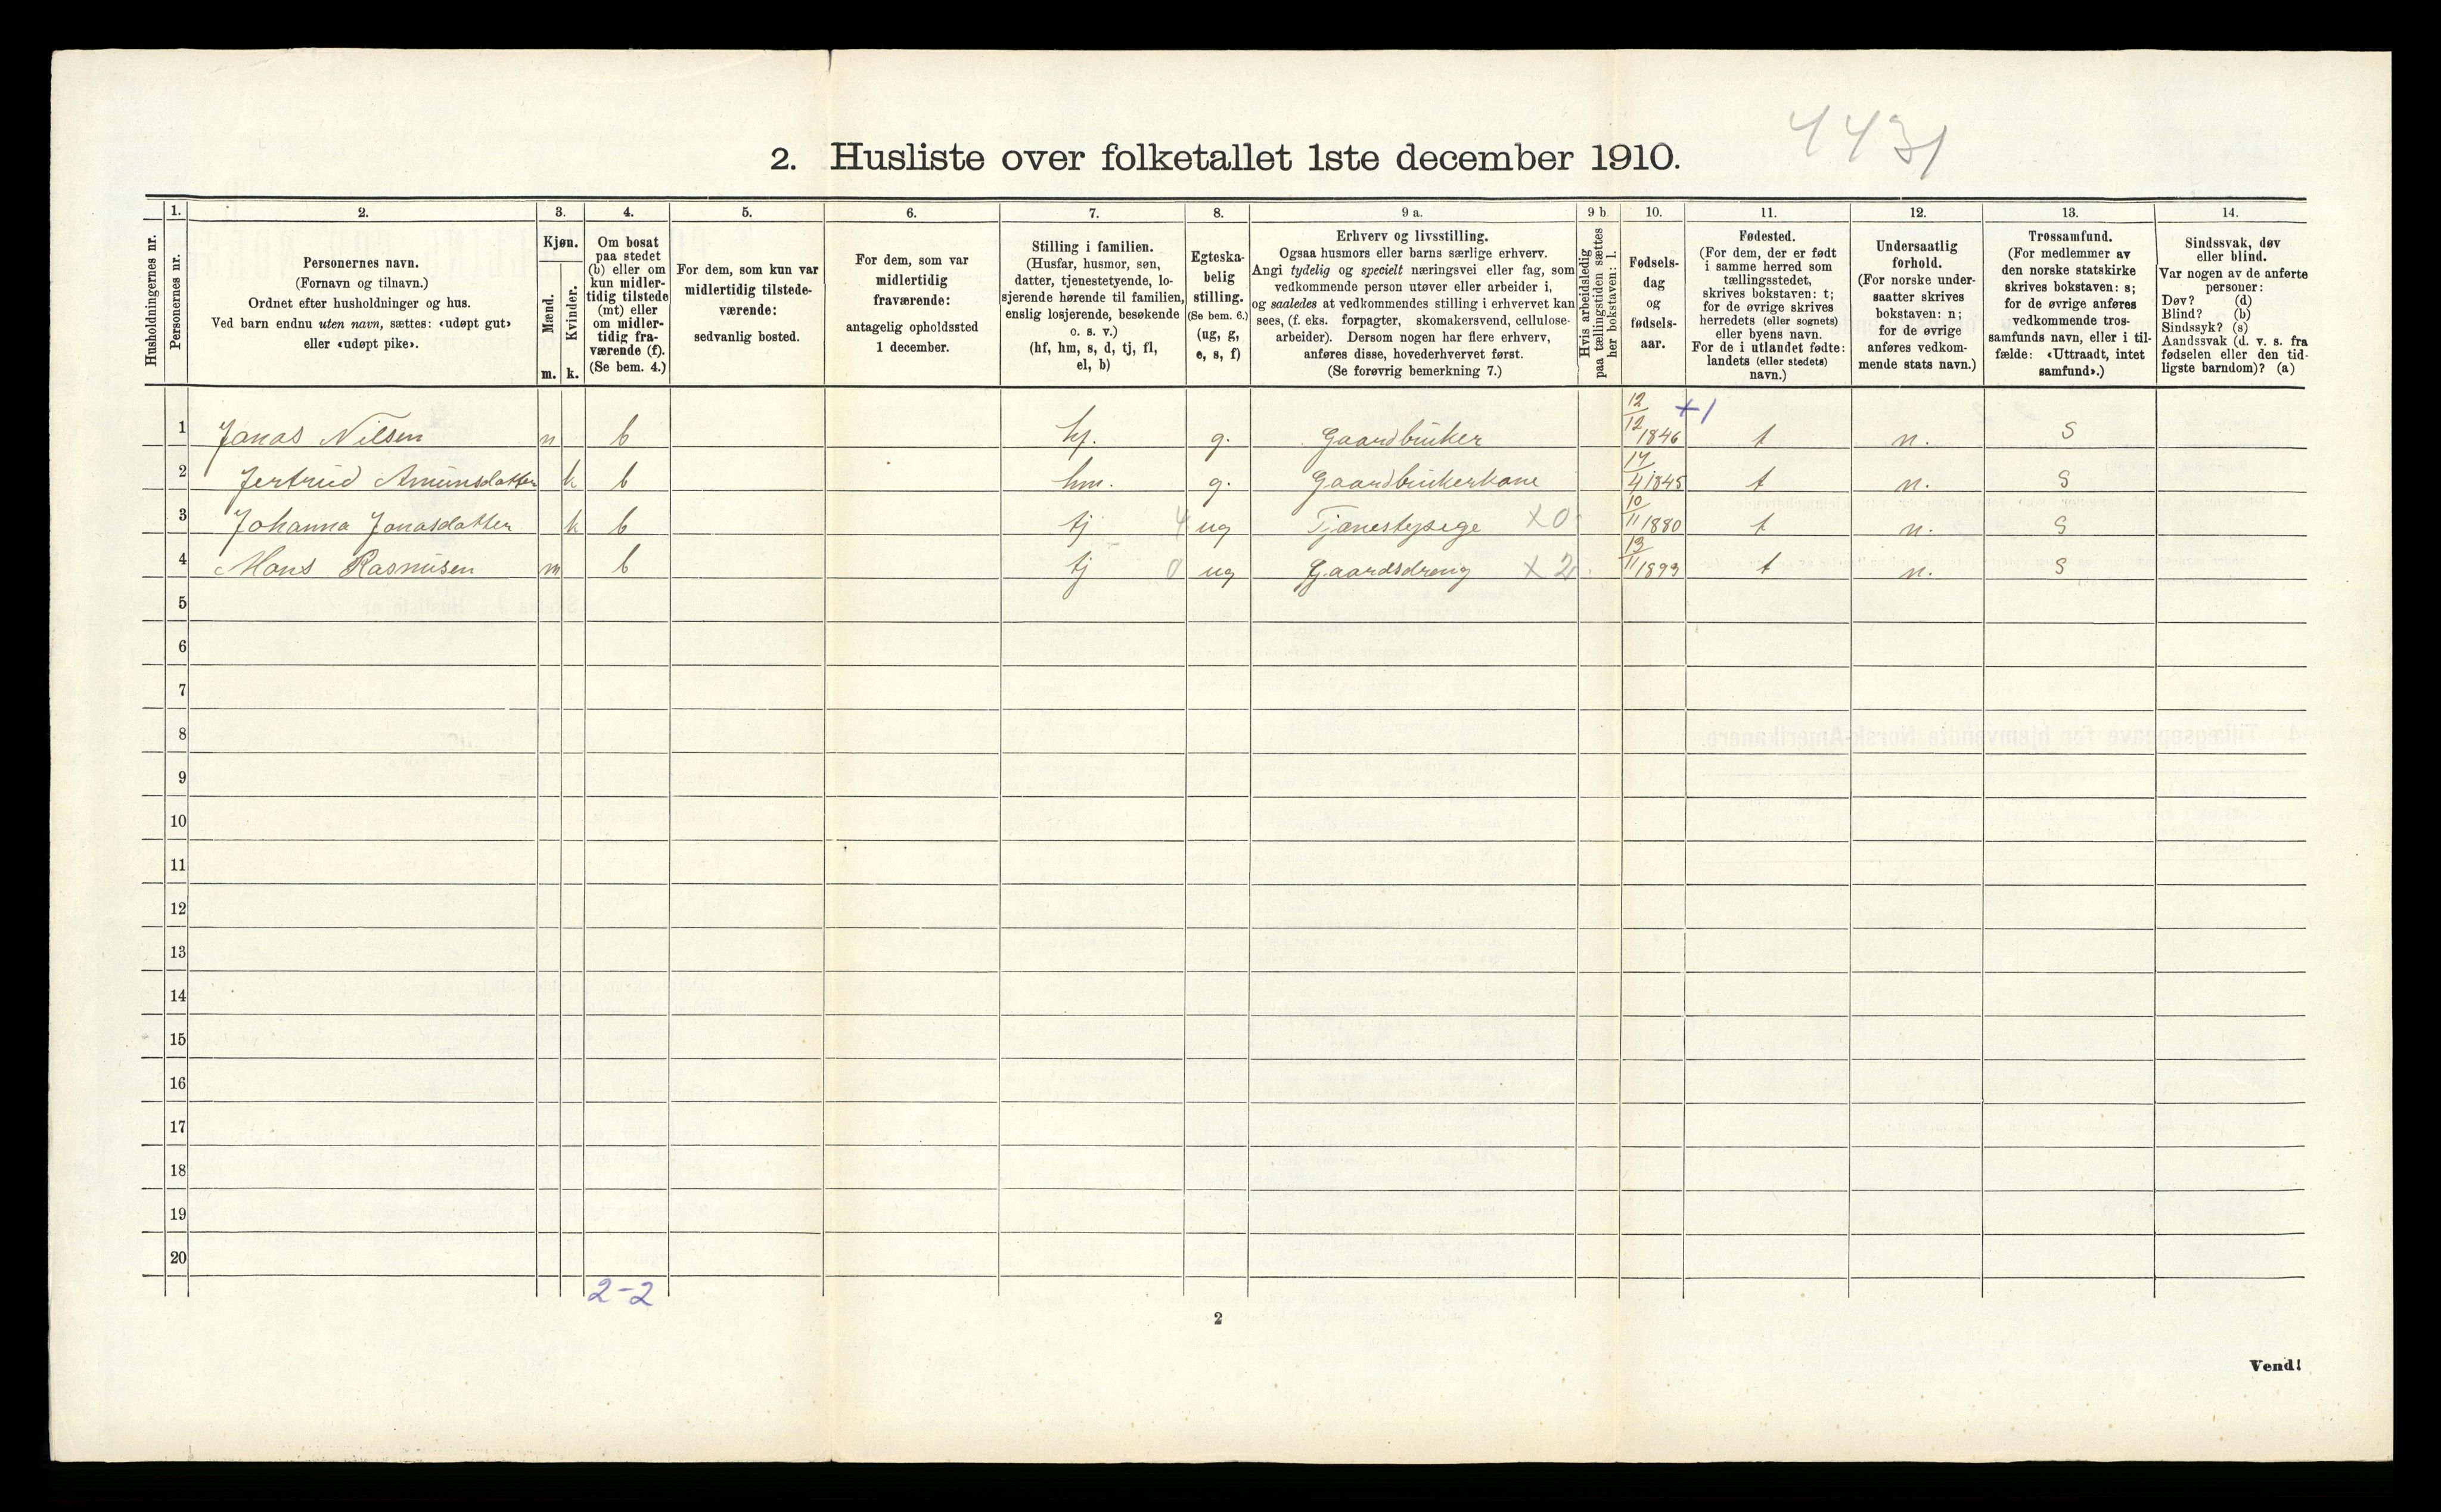 4431
2. Husliste over folketallet 1ste december 1910.
Husholdningernes nr.
1. Personernes nr.
2.
Personernes navn.
(Fornavn og tilnavn.)
Ordnet efter husholdninger og hus.
Ved barn endnu uten navn, sættes: «udøpt gut»
eller «udøpt pike».
3.
Kjøn.
Mænd.
Kvinder.
m. k.
4.
Om bosat
paa stedet
(b) eller om
kun midler-
tidig tilstede
(mt) eller
om midler-
tidig fra-
værende (f).
(Se bem. 4.)
5.
For dem, som kun var
midlertidig tilstede-
værende:
sedvanlig bosted.
6.
For dem, som var
midlertidig
fraværende:
antagelig opholdssted
1 december.
7.
Stilling i familien.
(Husfar, husmor, søn,
datter, tjenestetyende, lo-
sjerende hørende til familien,
enslig losjerende, besøkende
o. s. v.)
(hf, hm, s, d, tj, fl,
el, b)
8.
Egteska-
belig
stilling.
(Se bem. 6.)
(ug, g,
e, s, f)
9 a.
Erhverv og livsstilling.
Ogsaa husmors eller barns særlige erhverv.
Angi tydelig og specielt næringsvei eller fag, som
vedkommende person utøver eller arbeider i,
og saaledes at vedkommendes stilling i erhvervet kan
sees, (f. eks. forpagter, skomakersvend, cellulose-
arbeider). Dersom nogen har flere erhverv,
anføres disse, hovederhvervet først.
(Se forøvrig bemerkning 7.)
9 b
Hvis arbeidsledig
paa tællingstiden sættes
her bokstaven: l.
10.
Fødsels-
dag
og
fødsels-
aar.
11.
Fødested.
(For dem, der er født
i samme herred som
tællingsstedet,
skrives bokstaven: t;
for de øvrige skrives
herredets (eller sognets)
eller byens navn.
For de i utlandet fødte:
landets (eller stedets)
navn.)
12.
Undersaatlig
forhold.
(For norske under-
saatter skrives
bokstaven: n;
for de øvrige
anføres vedkom-
mende stats navn.)
13.
Trossamfund.
(For medlemmer av
den norske statskirke
skrives bokstaven: s;
for de øvrige anføres
vedkommende tros-
samfunds navn, eller i til-
fælde: «Uttraadt, intet
samfund».)
14.
Sindssvak, døv
eller blind.
Var nogen av de anførte
personer:
Døv? (d)
Blind? (b)
Sindssyk? (s)
Aandssvak (d. v. s. fra
fødselen eller den tid-
ligste barndom)? (a)
1 Jonas Nilsen m b hf. g. Gaardbruker 12/12 1846 +1 t n. s
2 Jertrud Amunsdatter k b hm. g. Gaardbrukerkone 14/4 1845 t n. s
3 Johanna Jonasdatter k b tj 4 ug Tjenestepige x0 10/11 1880 t n. s
4 Mons Rasmusen m b tj 0 ug Gaardsdreng x2 13/11 1893 t n. s
5
6
7
8
9
10
11
12
13
14
15
16
17
18
19
20
2-2
2
Vend!